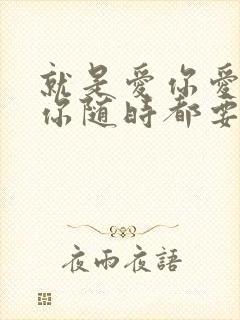 就是愛你愛
你随时都要
夜雨夜語